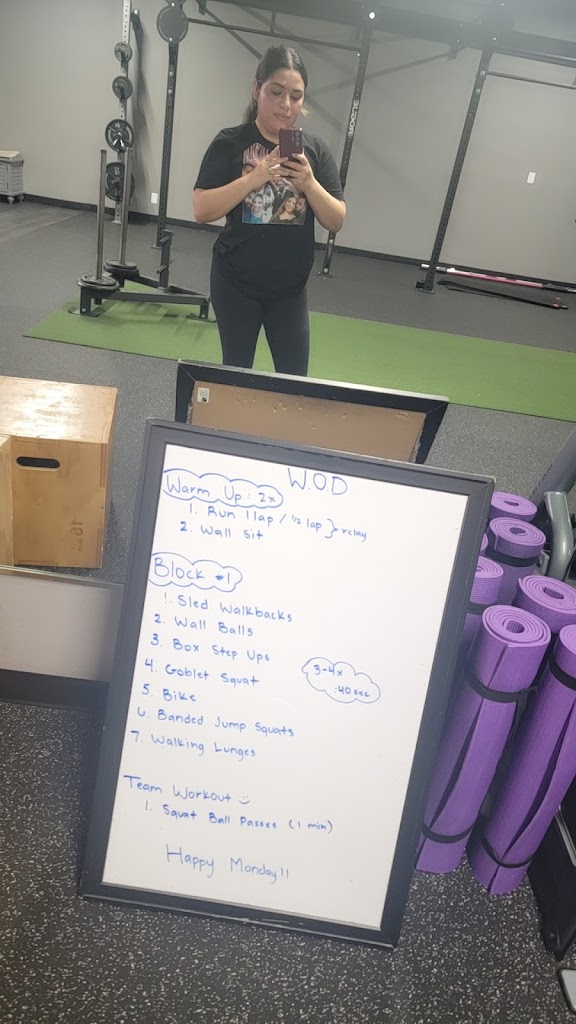 ROGUE
W.O.D
Warm Up: 2x
1. Run 1 lap / 1/2 lap } relay
2. Wall Sit
Block #1
1. Sled Walkbacks
2. Wall Balls
3. Box Step Ups
4. Goblet Squat
5. Bike
6. Banded Jump Squats
7. Walking Lunges
3-4x
:40 sec
Team Workout :)
1. Squat Ball Passes (1 min)
Happy Monday!!